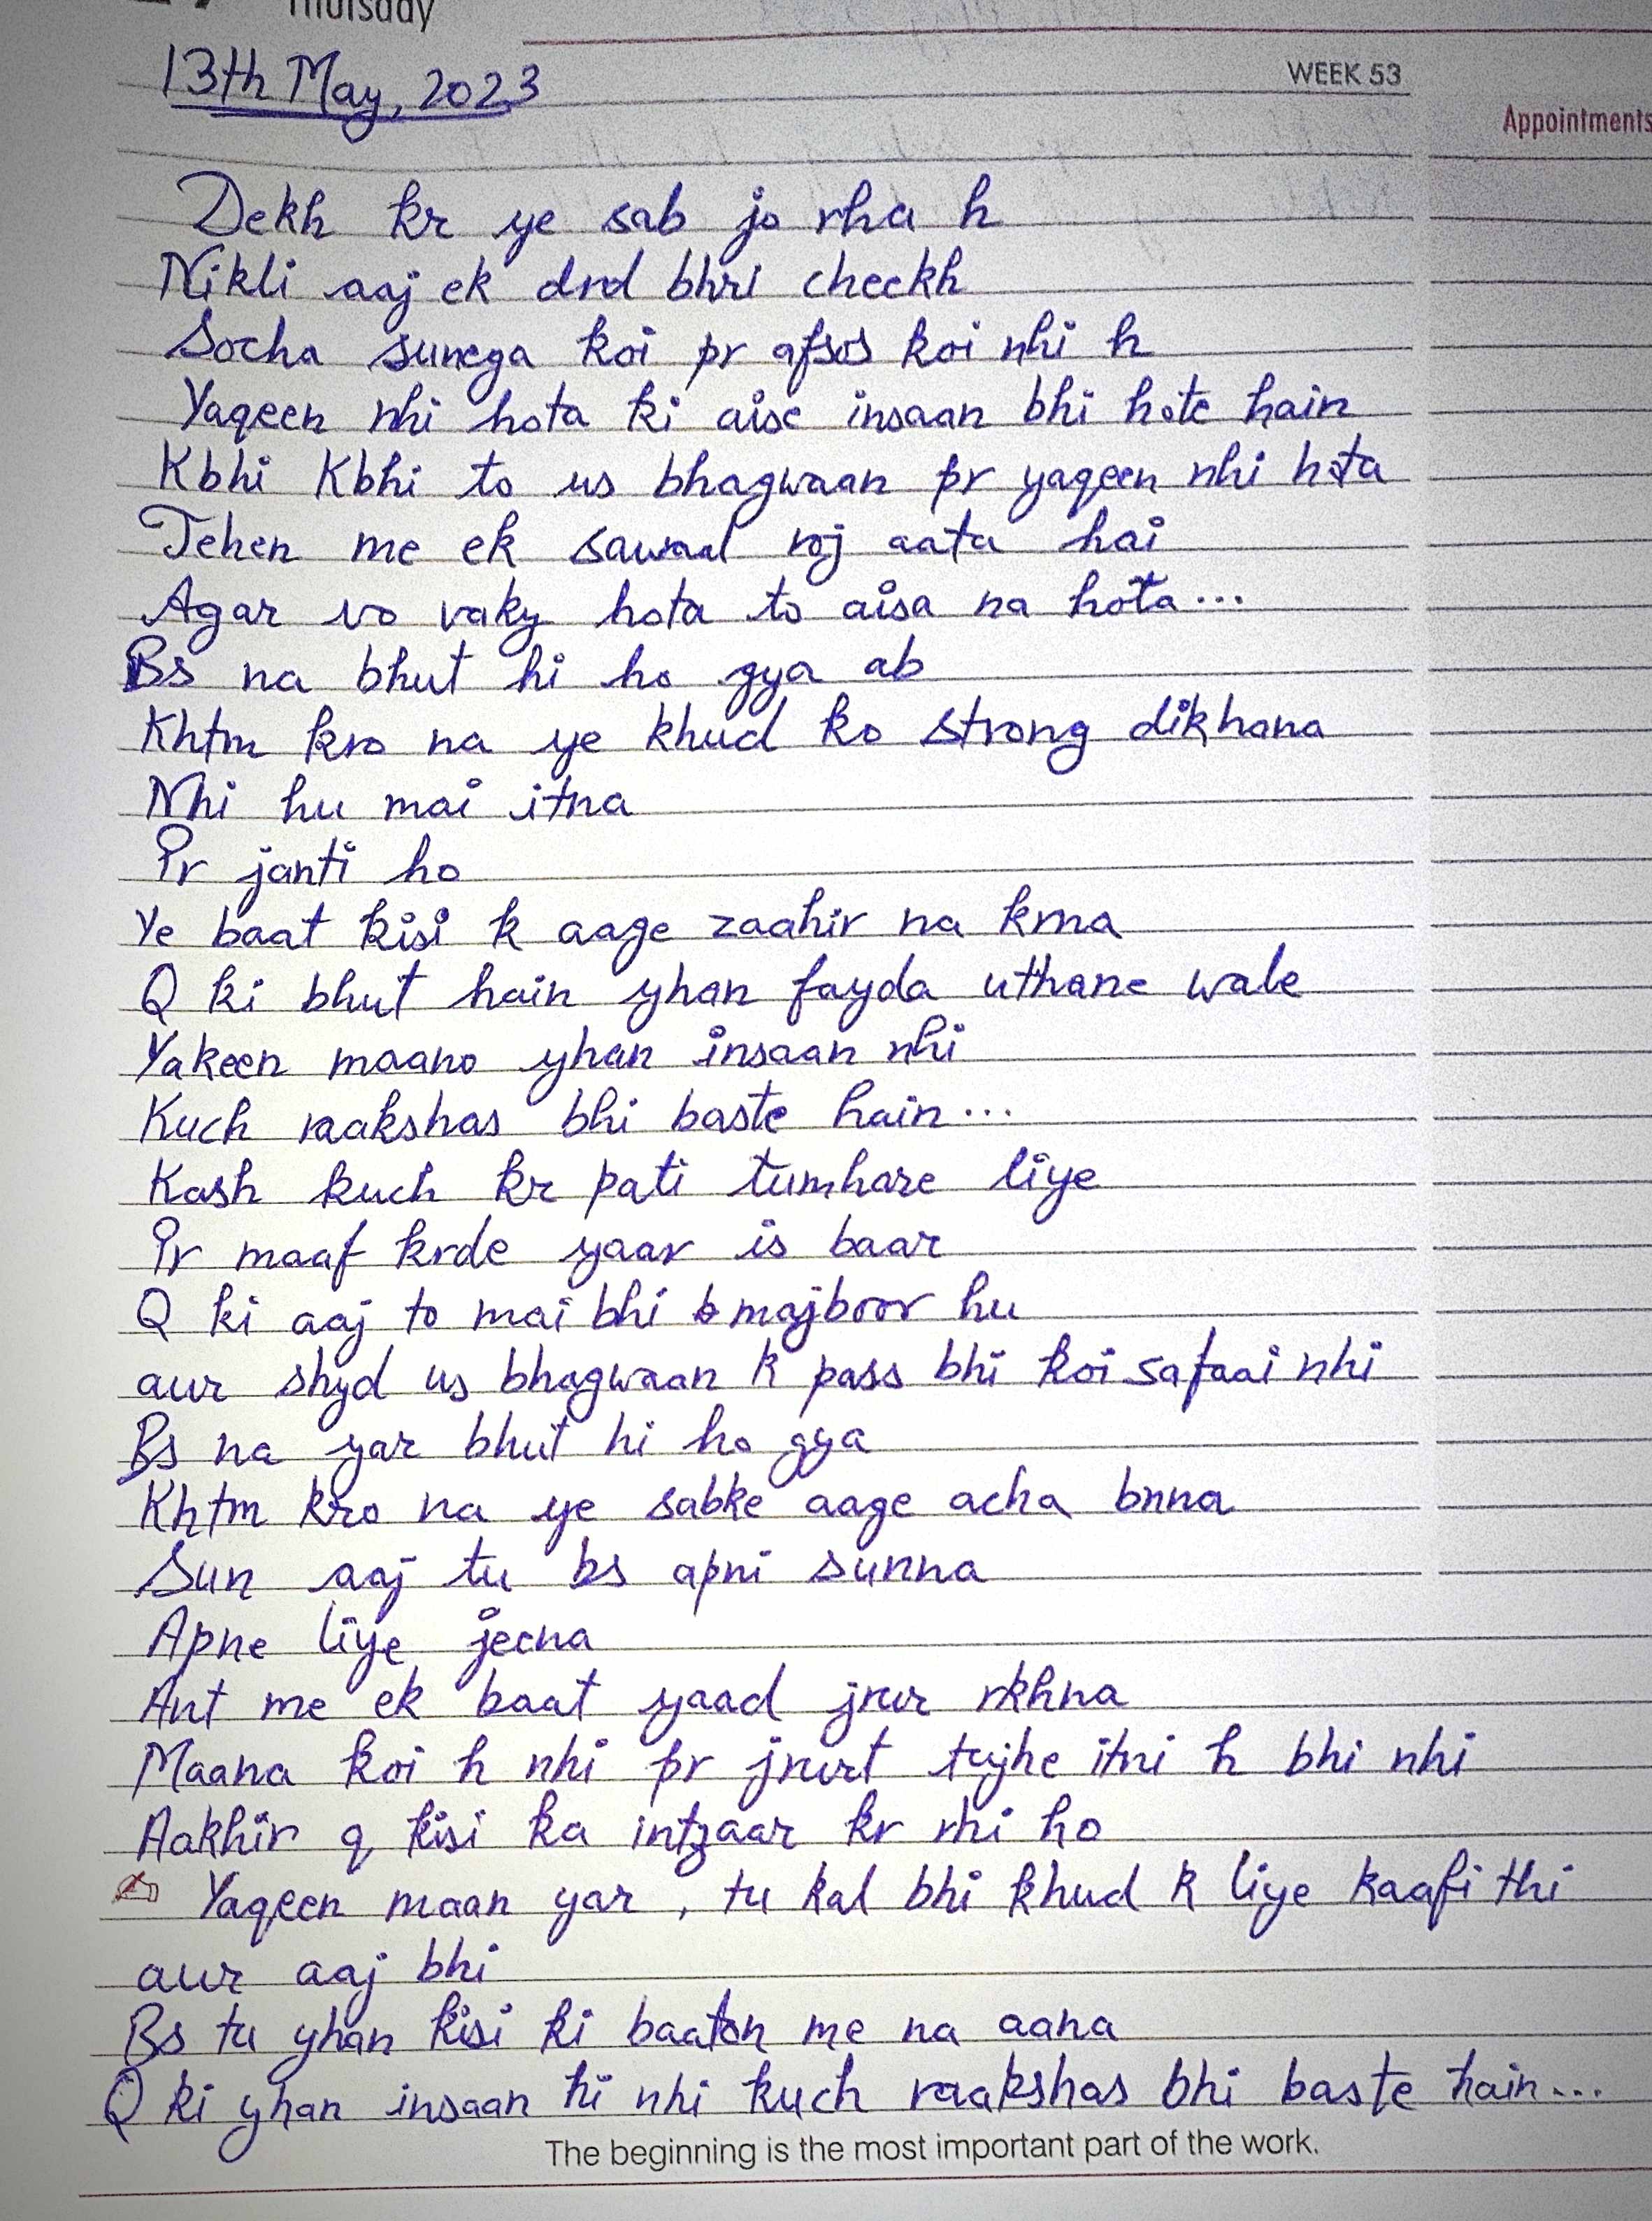 Thursday
13th May, 2023
WEEK 53
Appointments
Dekh kr ye sab jo rha h
Nikli aaj ek drd bhri cheekh
Socha sunega koi pr afsos koi nhi h
Yaqeen nhi hota ki aise insaan bhi hote hain
Kbhi Kbhi to us bhagwaan pr yaqeen nhi hota
Jehen me ek sawaal roj aata hai
Agar vo vaky hota to aisa na hota...
Bs na bhut hi ho gya ab
Khtm kro na ye khud ko strong dikhana
Nhi hu mai itna
Pr janti ho
Ye baat kisi k aage zaahir na krna
Q ki bhut hain yhan fayda uthane wale
Yakeen maano yhan insaan nhi
Kuch raakshas bhi baste hain...
Kash kuch kr pati tumhare liye
Pr maaf krde yaar is baar
Q ki aaj to mai bhi majboor hu
aur shyd us bhagwaan k pass bhi koi safaai nhi
Bs na yar bhut hi ho gya
Khtm kro na ye sabke aage acha bnna
Sun aaj tu bs apni sunna
Apne liye jeena
Ant me ek baat yaad jrur rkhna
Maana koi h nhi pr jrurt tujhe itni h bhi nhi
Aakhir q kisi ka intzaar kr rhi ho
✍ Yaqeen maan yar, tu kal bhi khud k liye kaafi thi
aur aaj bhi
Bs tu yhan kisi ki baaton me na aana
Q ki yhan insaan hi nhi kuch raakshas bhi baste hain...
The beginning is the most important part of the work.